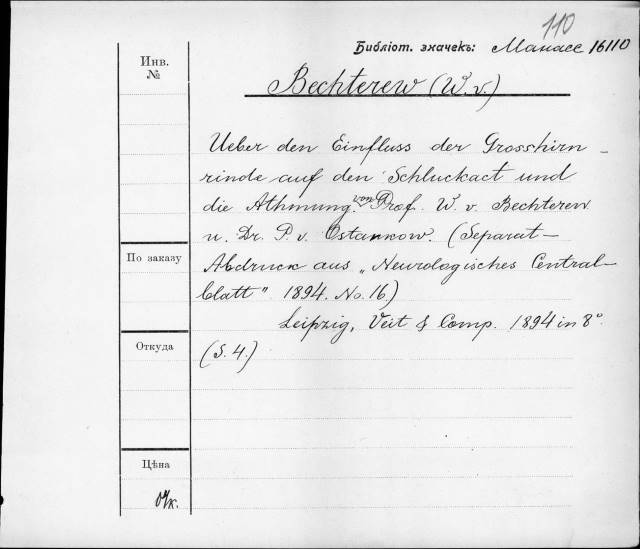 110
Библіот. значекъ: Манасе 16110
Инв.
№
Bechterew (W. v.)
Ueber den Einfluss der Grosshirn-
rinde auf den Schluckact und
die Athmung. von Prof. W. v. Bechterew
u. Dr. P. v. Ostankow. (Separat-
Abdruck aus „Neurologisches Central-
blatt" 1894. No. 16.)
Leipzig, Veit & Comp. 1894 in 8°.
(S. 4.)
По заказу
Откуда
Цѣна